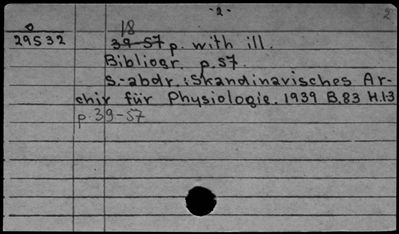 -2- 2
18
29532 39-57 p. with ill.
Bibliogr. p.57.
S.-abdr.: Skandinavisches Ar-
chiv für Physiologie. 1939 B.83 H.1-3
p.39-57